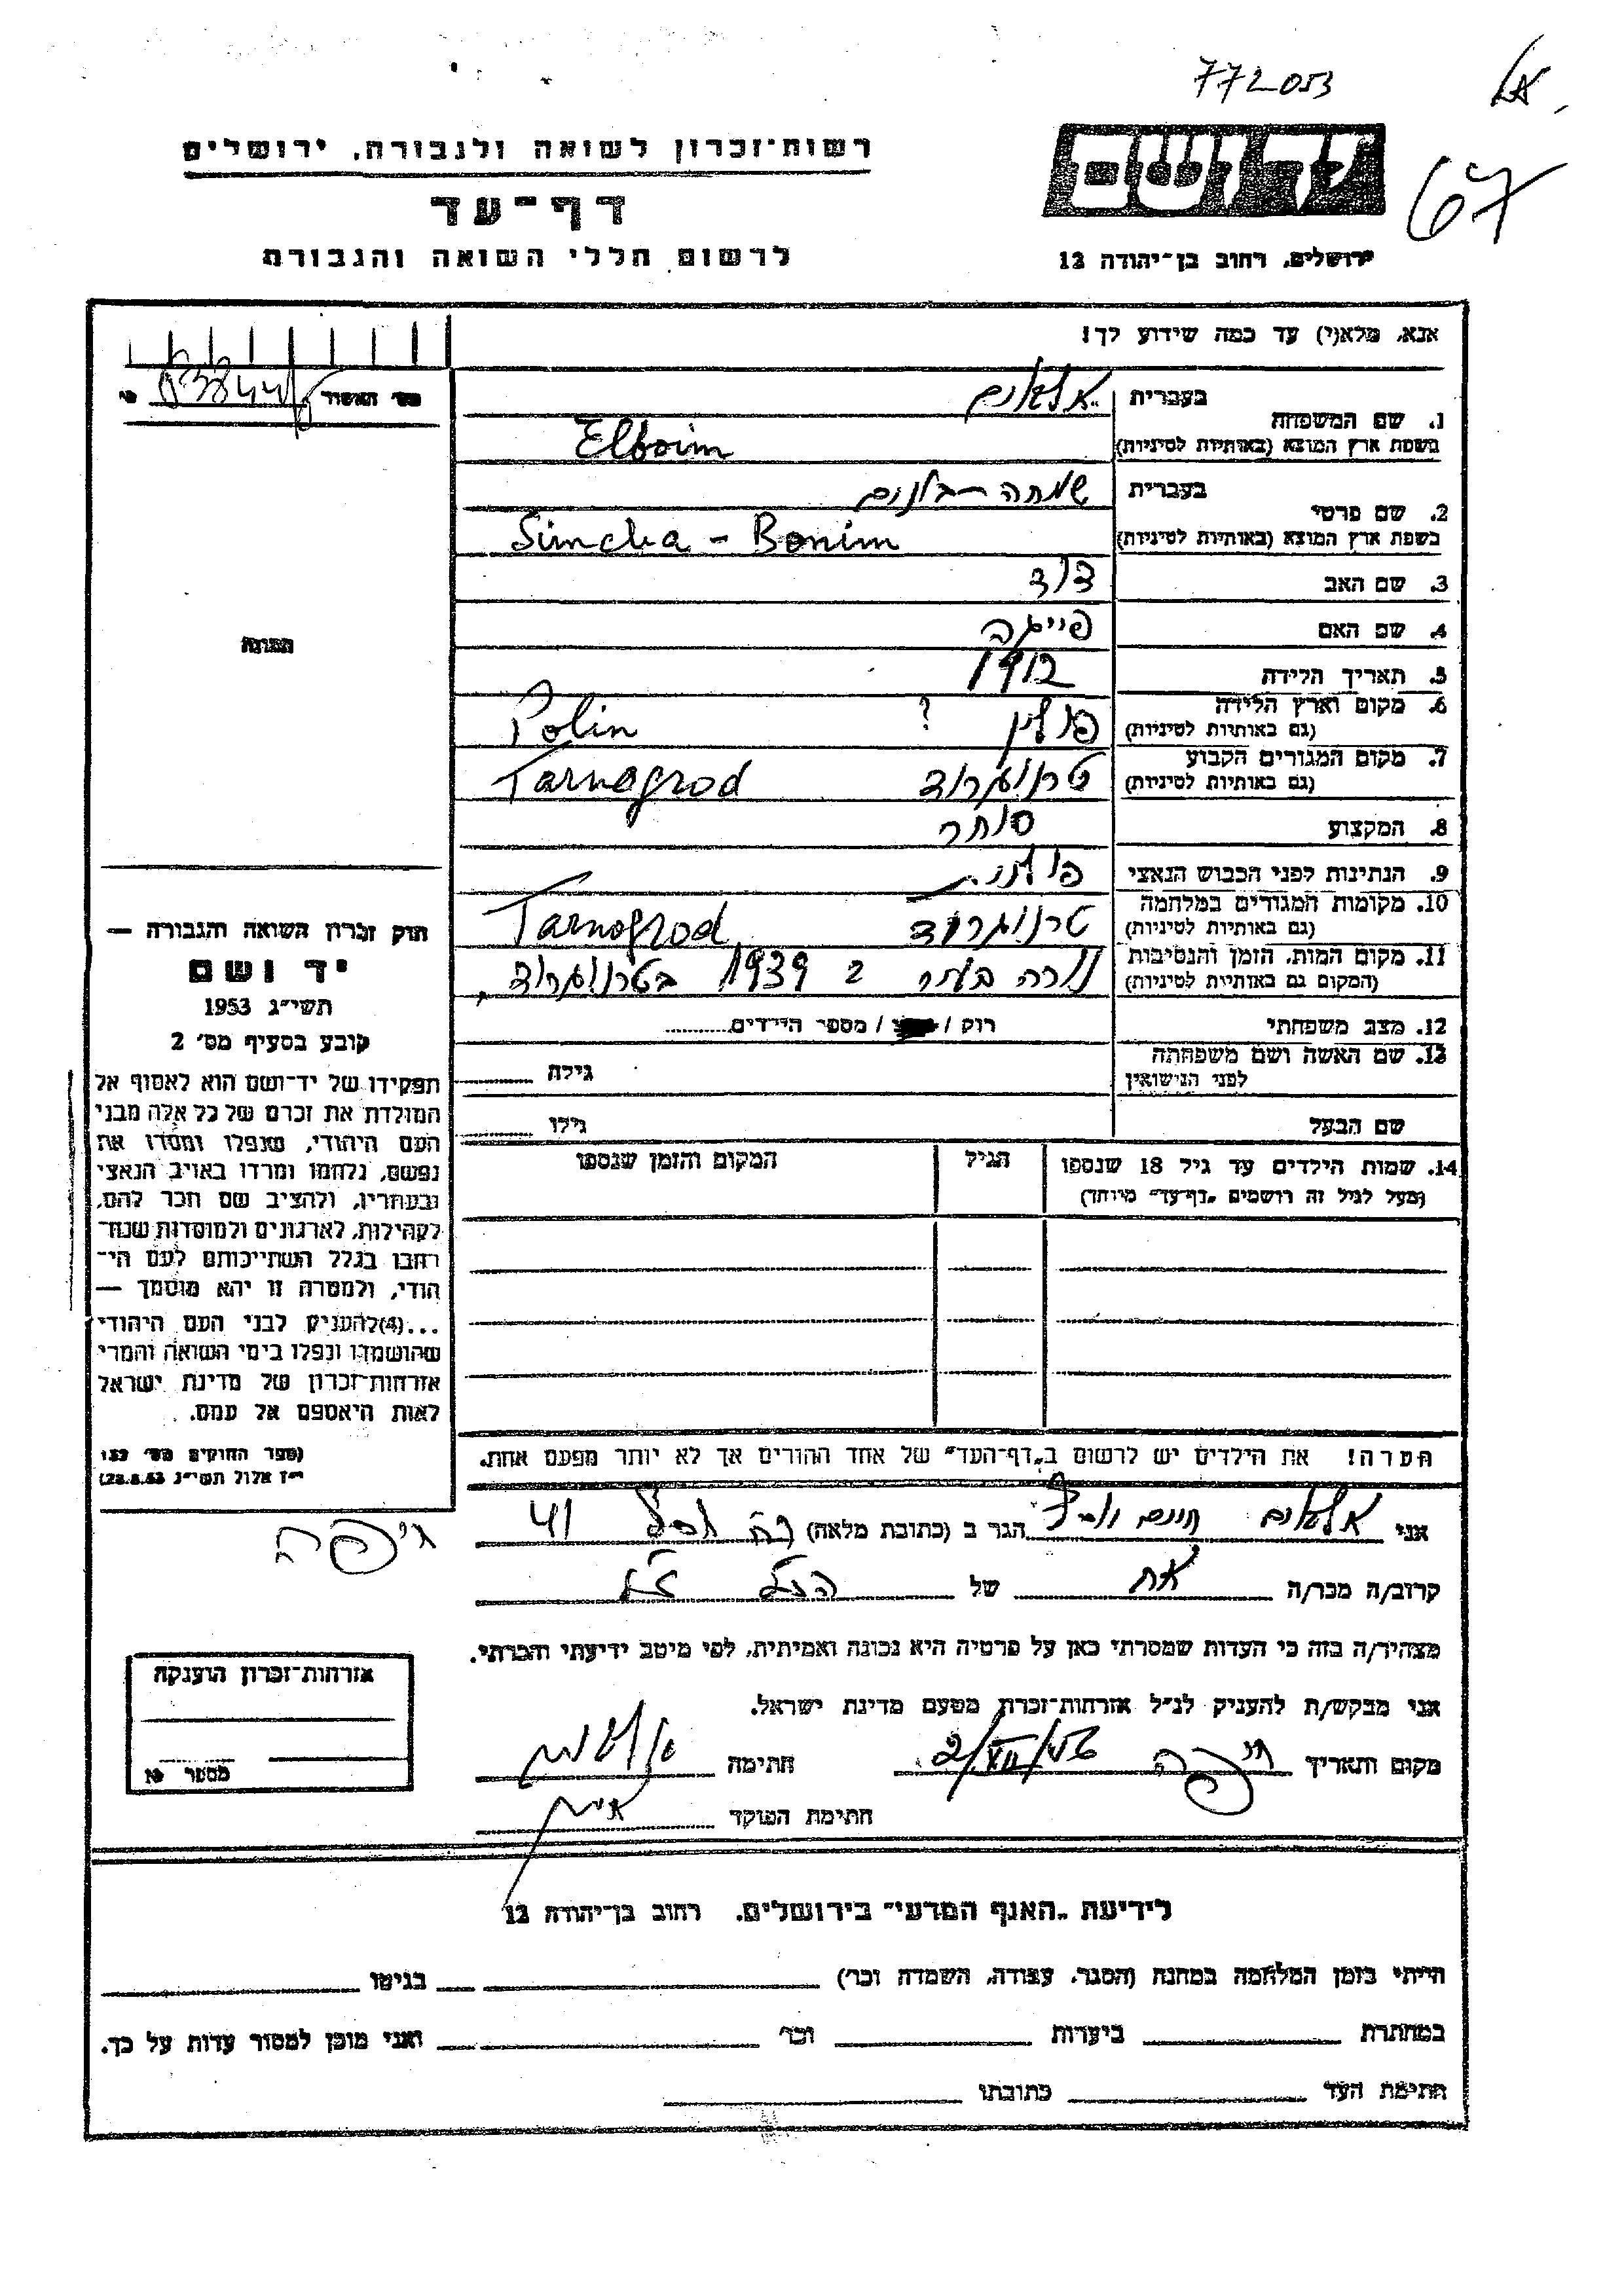 772053
67
רשות־זכרון לשואה ולגבורה, ירושלים
דף־עד
לרשום חללי השואה והגבורה
יד ושם
ירושלים, רחוב בן־יהודה 12
אנא, מלא(י) עד כמה שידוע לך!
1. שם המשפחה
בעברית
אלבוים
בשפת ארץ המוצא (באותיות לטיניות)
Elboim
2. שם פרטי
בעברית
שמחה-בונים
בשפת ארץ המוצא (באותיות לטיניות)
Simcha - Bonim
3. שם האב
דוד
4. שם האם
פייגה
5. תאריך הלידה
1912
6. מקום וארץ הלידה
(גם באותיות לטיניות)
פולין ? Polin
7. מקום המגורים הקבוע
(גם באותיות לטיניות)
טרנוגרוד Tarnogrod
8. המקצוע
סוחר
9. הנתינות לפני הכבוש הנאצי
פולנית
10. מקומות המגורים במלחמה
(גם באותיות לטיניות)
טרנוגרוד Tarnogrod
11. מקום המות, הזמן והנסיבות
(המקום גם באותיות לטיניות)
נורה 1939 בטרנוגרוד
12. מצב משפחתי
רוק / / מספר הילדים
13. שם האשה ושם משפחתה
לפני הנישואין
גילה
שם הבעל
גילו
14. שמות הילדים עד גיל 18 שנספו
(מעל לגיל זה רושמים „דף־עד" מיוחד)
הגיל
המקום והזמן שנספו
הערה! את הילדים יש לרשום ב„דף־העד" של אחד ההורים אך לא יותר מפעם אחת.
מס' האשור
התמונה
חוק זכרון השואה והגבורה —
יד ושם
תשי"ג 1953
קובע בסעיף מס' 2
תפקידו של יד־ושם הוא לאסוף אל
המולדת את זכרם של כל אלה מבני
העם היהודי, שנפלו ומסרו את
נפשם, נלחמו ומרדו באויב הנאצי
ובעוזריו, ולהציב שם וזכר להם,
לקהילות, לארגונים ולמוסדות שנח־
רבו בגלל השתייכותם לעם הי־
הודי, ולמטרה זו יהא מוסמך —
...(4)להעניק לבני העם היהודי
שהושמדו ונפלו בימי השואה והמרי
אזרחות־זכרון של מדינת ישראל
לאות היאספם אל עמם.
(ספר החוקים מס' 132
י"ז אלול תשי"ג 28.8.53)
אני אלבוים חיים הגר ב (כתובת מלאה) 41
חיפה
קרוב/ה מכר/ה אח של הנ"ל
מצהיר/ה בזה כי העדות שמסרתי כאן על פרטיה היא נכונה ואמיתית, לפי מיטב ידיעתי והכרתי.
אני מבקש/ת להעניק לנ"ל אזרחות־זכרון מטעם מדינת ישראל.
מקום ותאריך חיפה 2/VII/56 חתימה
חתימת הפוקד
אזרחות־זכרון הוענקה
מספר
לידיעת „האגף המדעי" בירושלים, רחוב בן־יהודה 12
הייתי בזמן המלחמה במחנה (הסגר, עבודה, השמדה וכו') בגיטו
במחתרת ביערות וכו' ואני מוכן למסור עדות על כך.
חתימת העד כתובתו